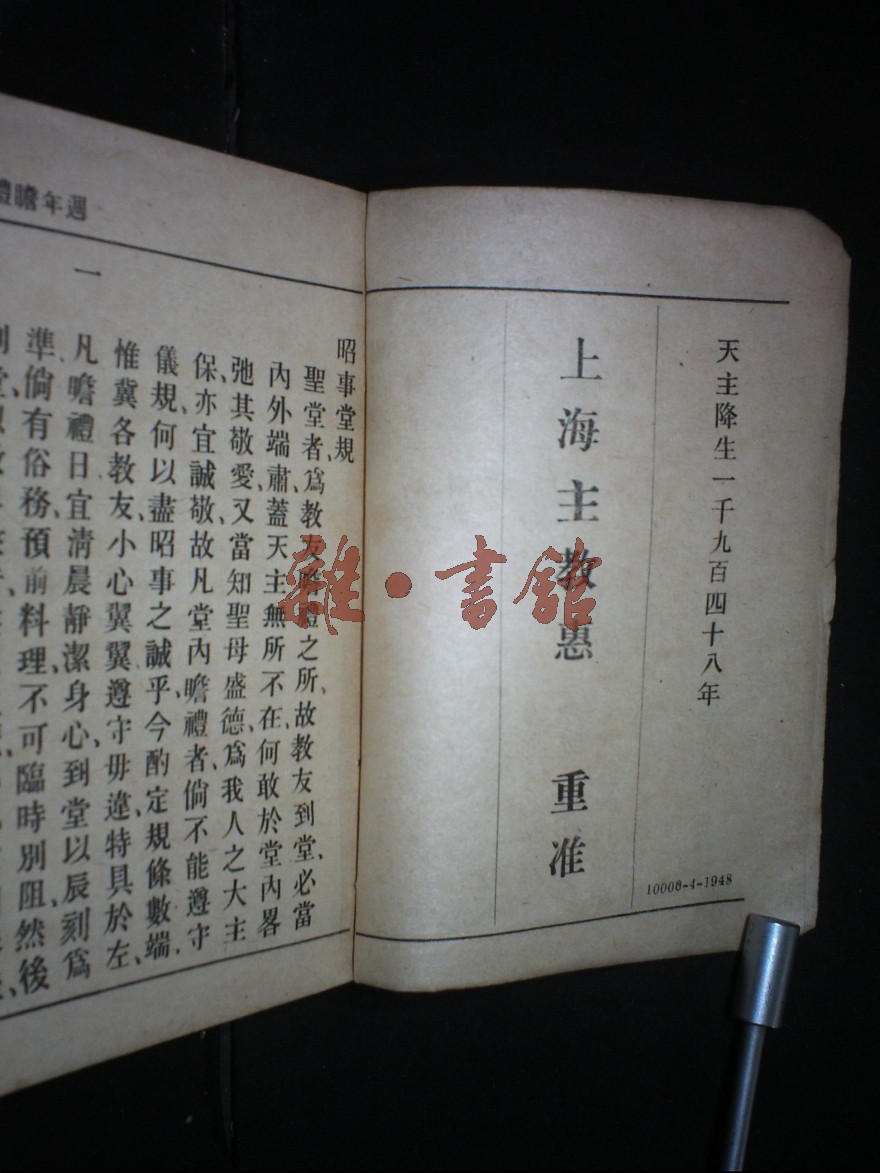 天主降生一千九百四十八年
上海主教惠 重准
10000-4-1948
週年瞻禮
昭事堂規、
聖堂者、爲教友瞻禮之所、故教友到堂、必當
內外端肅、蓋天主無所不在、何敢於堂內畧
弛其敬愛、又當知聖母盛德、爲我人之大主
保、亦宜誠敬、故凡堂內瞻禮者、倘不能遵守
儀規、何以盡昭事之誠乎、今酌定規條數端、
惟冀各教友、小心翼翼、遵守毋違、特具於左、
一 凡瞻禮日、宜清晨靜潔身心、到堂以辰刻爲
準、倘有俗務、預前料理、不可臨時別阻、然後
雜·書館